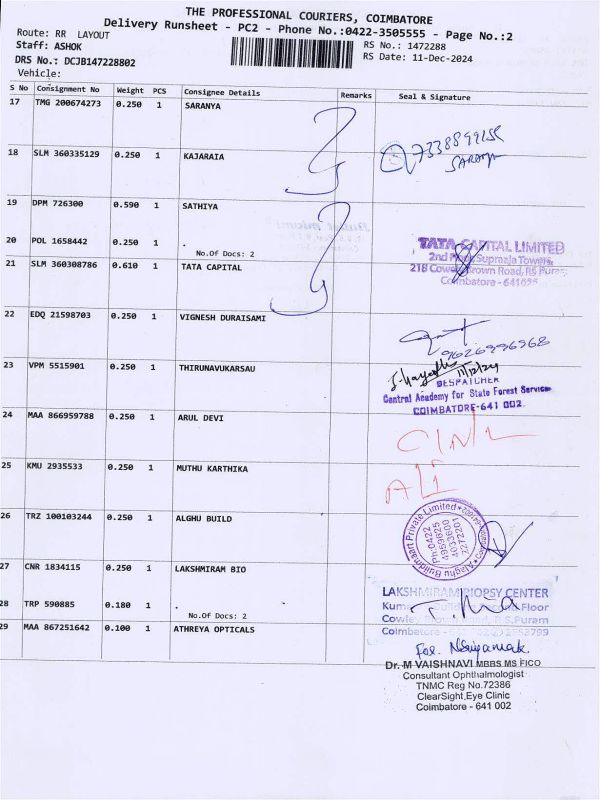 THE PROFESSIONAL COURIERS, COIMBATORE
Delivery Runsheet - PC2 - Phone No.:0422-3505555 - Page No.:2
Route: RR LAYOUT
Staff: ASHOK
RS No.: 1472288
DRS No.: DCJB147228802
RS Date: 11-Dec-2024
Vehicle:
S No Consignment No Weight PCS Consignee Details Remarks Seal & Signature
17 TMG 200674273 0.250 1 SARANYA
7338899155
SARANYA
18 SLM 360335129 0.250 1 KAJARAIA
19 DPM 726300 0.590 1 SATHIYA
20 POL 1658442 0.250 1 .
No.Of Docs: 2
TATA CAPITAL LIMITED
2nd Floor, Supraja Towers,
21B Cowley Brown Road, RS Puram,
Coimbatore - 641
21 SLM 360308786 0.610 1 TATA CAPITAL
22 EDQ 21598703 0.250 1 VIGNESH DURAISAMI
9626996968
23 VPM 5515901 0.250 1 THIRUNAVUKARSAU
11/12/24
DESPATCHER
Central Academy for State Forest Service
COIMBATORE-641 002.
24 MAA 866959788 0.250 1 ARUL DEVI
25 KMU 2935533 0.250 1 MUTHU KARTHIKA
26 TRZ 100103244 0.250 1 ALGHU BUILD
Alaghu Buildmaart Private Limited
Ph:0422
4959625
4033600
27 CNR 1834115 0.250 1 LAKSHMIRAM BIO
LAKSHMIRAM BIOPSY CENTER
Second Floor
R.S.Puram
Coimbatore
28 TRP 590885 0.180 1 .
No.Of Docs: 2
29 MAA 867251642 0.100 1 ATHREYA OPTICALS
For.
Dr. M VAISHNAVI MBBS MS FICO
Consultant Ophthalmologist
TNMC Reg No.72386
ClearSight Eye Clinic
Coimbatore - 641 002